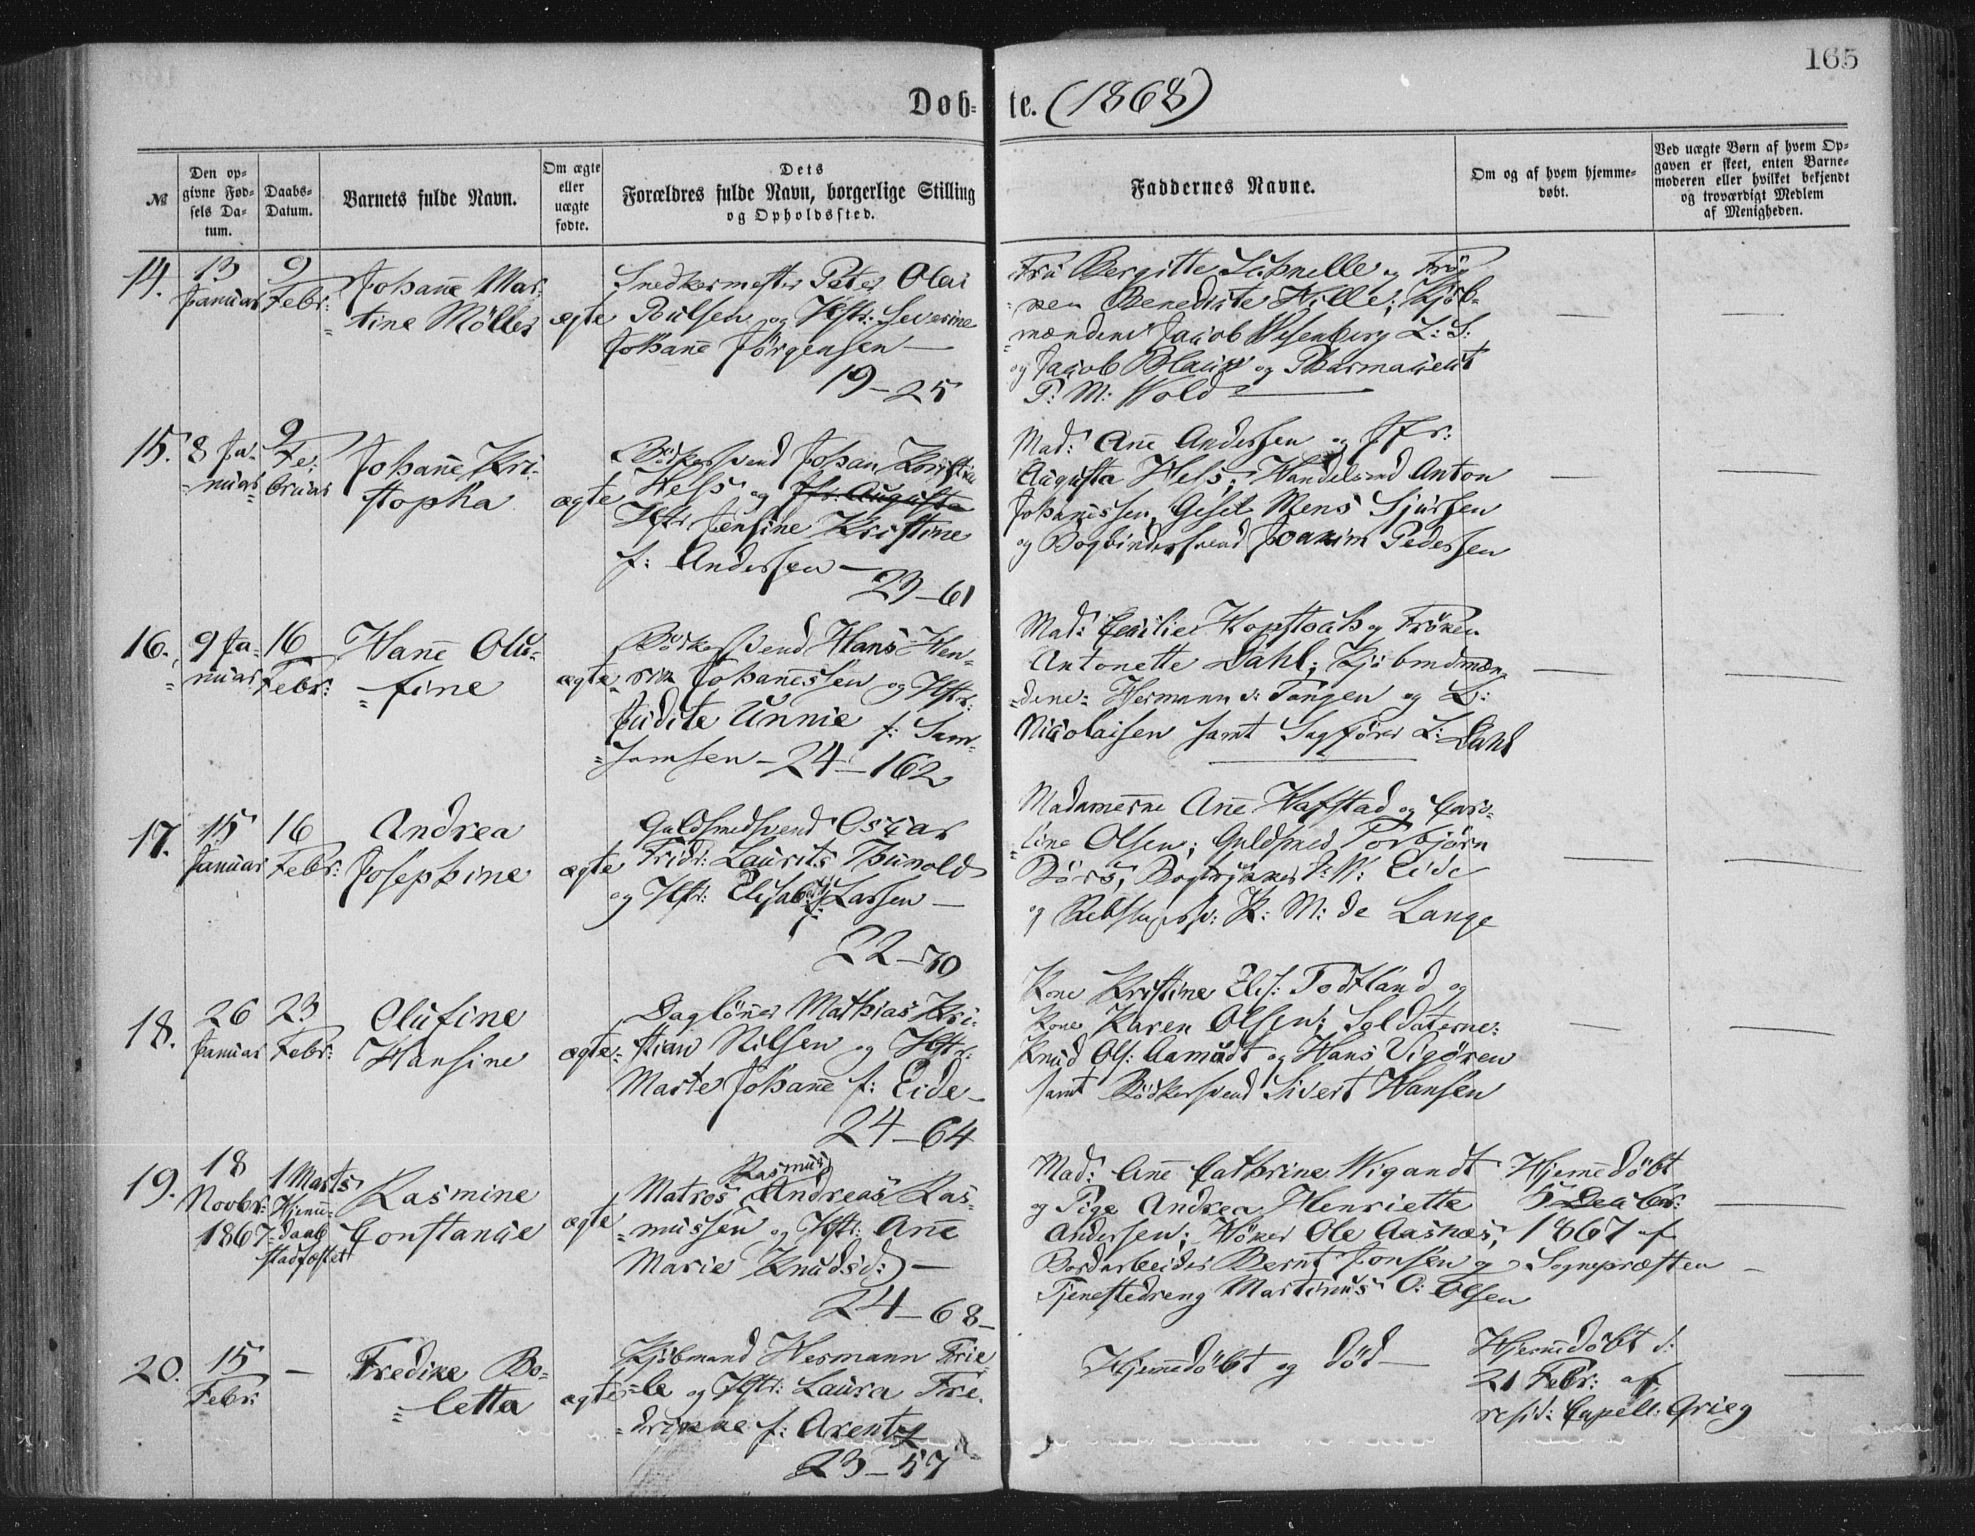 165
Døb- te. (1868)
№
Den op-
givne Fød-
sels Da-
tum.
Daabs-
Datum.
Barnets fulde Navn.
Om ægte
eller
uægte
fødte.
Dets
Forældres fulde Navn, borgerlige Stilling
og Opholdssted.
Faddernes Navne.
Om og af hvem hjemme-
døbt.
Ved uægte Børn af hvem Op-
gaven er skeet, enten Barne-
moderen eller hvilket bekjendt
og troværdigt Medlem
af Menigheden.
14.
13
Januar
9
Febr:
Johanne Mar-
tine Möller
ægte
Snedkermester Peter Olai
Pulsen og Hstr: Severine
Johanne Jörgensen —
19 – 25
Fru Bergitte Schnelle og Frö-
ken Benedicte Hille; Kjöb-
mændene Jacob Wesenberg L: S:
og Jacob Blauw og Pharmaceut
P: M: Wold
—
—
15.
8 Ja-
nuar
9
Fe-
bruar
Johanne Kri-
stopha
ægte
Bödkersvend Johan Kristian
Hess og Jfr: Augusta
Hstr Jensine Kristine
f: Andersen —
23 – 61
Mad: Ane Andersen og Jfr:
Augusta Hess; Handelsmd Anton
Johannessen, Gesel Mens Sjursen
og Bogbindersvend Joakim Pedersen
—
—
16.
9 Ja-
nuar
16
Febr:
Hanne Olu-
fine
ægte
Bödkersvend Hans Hen-
rik Johannessen og Hstr:
Judite Unnie f: Sam-
samsen – 24 – 162
Mad: Cecilie Kopstoch og Fröken
Antonette Dahl; Kjöbmdmæn-
dene: Hermann v: Tangen og L:
Nicolaisen samt Sagförer L: Dahl
—
—
17.
15
Januar
16
Febr:
Andrea
Josephine
ægte
Guldsmedsvend Oscar
Fridr: Laurits Thunold
og Hstr: Elisab: f: Larsen —
22 – 70
Madamerne Ane Hafstad og Caro-
line Olsen; Guldsmed Torbjörn
Börs, Bogtrykker J: W: Eide
og K: M: de Lange
—
—
18.
26
Januar
23
Febr:
Olufine
Hansine
ægte
Daglönner Mathias Kri-
stian Nilsen og Hstr:
Marte Johanne f: Eide –
24 – 64
Kone Kristine Elis: Todtland og
Kone Karen Olsen; Soldaterne:
Knud Ols: Aamodt og Hans Vigören
samt Bödkersvend Sivert Hansen
—
—
19.
18
Novbr:
1867
1 Marts
Hjemme-
daab
stadfæstet
Rasmine
Constance
ægte
Rasmus
Matros Andreas Ras-
mussen og Hstr: Ane
Marie Knudsd: —
24 – 68 –
Mad: Ane Cathrine Wigandt
og Pige Andrea Henriette
Andersen; Höker Ole Aasnæs,
Bordarbeider Bernt Jonsen og
Tjenestedreng Martinus O: Olsen
Hjemmedöbt
5 Decbr:
1867 af
Sognepræsten
—
20.
15
Febr:
—
Fredike Bo-
letta
ægte
Kjöbmand Hermann Frie-
le og Hstr: Laura Fre-
drikke f: Arentz
23 – 57
Hjemmedöbt og död —
Hjemmedöbt d:
21 Febr: af
resid: Capell: Grieg
—